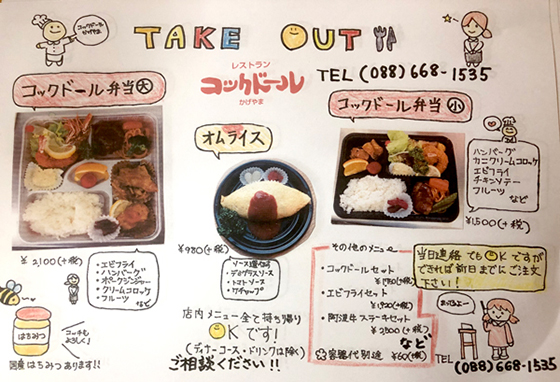 コックドール
かげやま
TAKE OUT
レストラン
コックドール
かげやま
TEL (088)668-1535
コックドール弁当 大
オムライス
コックドール弁当 小
ハンバーグ
カニクリームコロッケ
エビフライ
チキンソテー
フルーツ
など
¥1,500(+税)
¥2,100(+税)
・エビフライ
・ハンバーグ
・ポークジンジャー
・クリームコロッケ
・フルーツ
など
¥980(+税)
ソース選べる
・デミグラスソース
・トマトソース
・ケチャップ
その他のメニュー
・コックドールセット
・エビフライセット
・阿波牛ステーキセット
¥2,500(+税)
など
容器代別途 ¥60(+税)
当日連絡でもOKですが
できれば前日までにご注文
下さい!
はちみつ
コッチも
よろしく!
国産はちみつあります!!
店内メニュー全て持ち帰り
OKです!
(ディナーコース・ドリンクは除く)
ご相談ください!!
TEL (088)668-1535